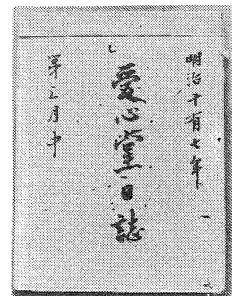 明治十有七年
愛心堂日誌
第三月中